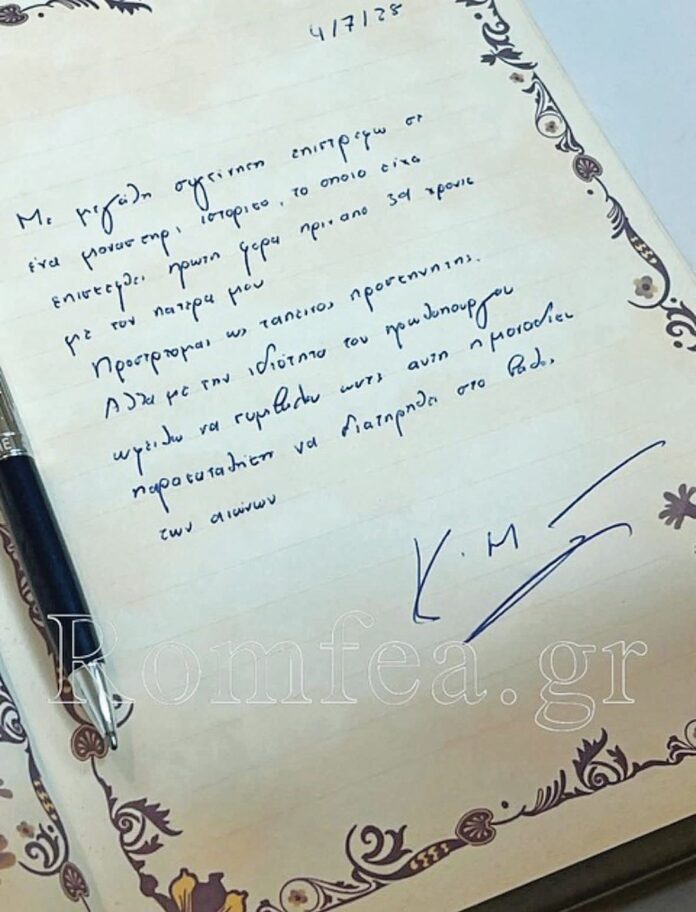 4/7/25
Με μεγάλη συγκίνηση επιστρέφω σε
ένα μοναστήρι ιστορικό, το οποίο είχα
επισκεφθεί πρώτη φορά πριν από 39 χρόνια
με τον πατέρα μου
Προσέρχομαι ως ταπεινός προσκυνητής.
Αλλά με την ιδιότητα του πρωθυπουργού
οφείλω να συμβάλλω ώστε αυτή η μοναδική
παρακαταθήκη να διατηρηθεί στο βάθος
των αιώνων
Κ. Μ
Romfea.gr